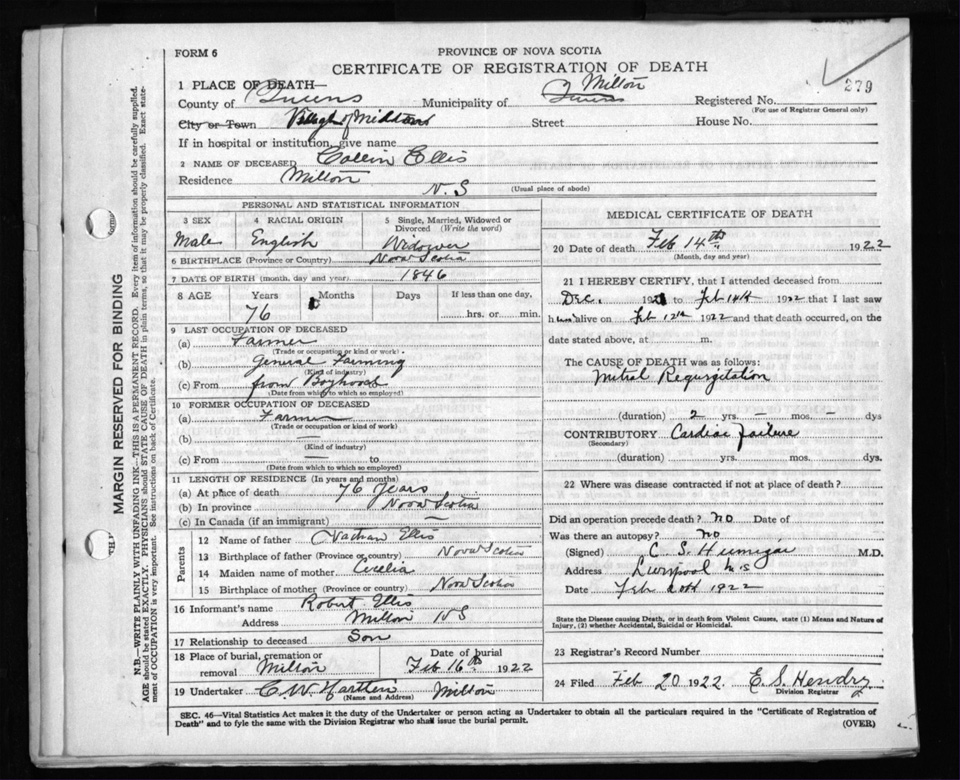 FORM 6
PROVINCE OF NOVA SCOTIA
CERTIFICATE OF REGISTRATION OF DEATH
279
1 PLACE OF DEATH—
County of Queens Municipality of Milton Queens Registered No.
(For use of Registrar General only)
City or Town Village of Street House No.
If in hospital or institution, give name
2 NAME OF DECEASED Collin Ellis
Residence Milton N.S
(Usual place of abode)
PERSONAL AND STATISTICAL INFORMATION
3 SEX 4 RACIAL ORIGIN 5 Single, Married, Widowed or Divorced (Write the word)
Male English Widower
6 BIRTHPLACE (Province or Country) Nova Scotia
7 DATE OF BIRTH (month, day and year) 1846
8 AGE Years Months Days If less than one day,
76 hrs. or min.
9 LAST OCCUPATION OF DECEASED
(a) Farmer
(Trade or occupation or kind or work)
(b) General Farming
(Kind of industry)
(c) From from Boyhood
(Date from which to which so employed)
10 FORMER OCCUPATION OF DECEASED
(a) Farmer
(Trade or occupation or kind of work)
(b) —
(Kind of industry)
(c) From — to
(Date from which to which so employed)
11 LENGTH OF RESIDENCE (In years and months)
(a) At place of death 76 years
(b) In province Nova Scotia
(c) In Canada (if an immigrant) —
Parents
12 Name of father Nathan Ellis
13 Birthplace of father (Province or country) Nova Scotia
14 Maiden name of mother Cecelia
15 Birthplace of mother (Province or country) Nova Scotia
16 Informant's name Robert Ellis
Address Milton NS
17 Relationship to deceased Son
18 Place of burial, cremation or removal Milton
Date of burial Feb 16th 1922
19 Undertaker C. W. Milton
(Name and Address)
MEDICAL CERTIFICATE OF DEATH
20 Date of death Feb 14th 1922
(Month, day and year)
21 I HEREBY CERTIFY, that I attended deceased from
Dec. 1921 to Feb 14th 1922 that I last saw
him alive on Feb 12th 1922 and that death occurred, on the
date stated above, at m.
The CAUSE OF DEATH was as follows:
Mitral Regurgitation
(duration) 2 yrs. — mos. — dys
CONTRIBUTORY Cardiac failure
(Secondary)
(duration) yrs. mos. dys.
22 Where was disease contracted if not at place of death?
Did an operation precede death? no Date of
Was there an autopsy? no
(Signed) C. S. M.D.
Address Liverpool N.S
Date Feb 20th 1922
State the Disease causing Death, or in death from Violent Causes, state (1) Means and Nature of
Injury, (2) whether Accidental, Suicidal or Homicidal.
23 Registrar's Record Number
24 Filed Feb 20 1922. E. S. Hendry
Division Registrar
SEC. 46—Vital Statistics Act makes it the duty of the Undertaker or person acting as Undertaker to obtain all the particulars required in the "Certificate of Registration of
Death" and to fyle the same with the Division Registrar who shall issue the burial permit.
(OVER)
MARGIN RESERVED FOR BINDING
N.B.—WRITE PLAINLY WITH UNFADING INK—THIS IS A PERMANENT RECORD. Every item of information should be carefully supplied.
AGE should be stated EXACTLY. PHYSICIANS should STATE CAUSE OF DEATH in plain terms, so that it may be properly classified. Exact state-
ment of OCCUPATION is very important. See instructions on back of Certificate.